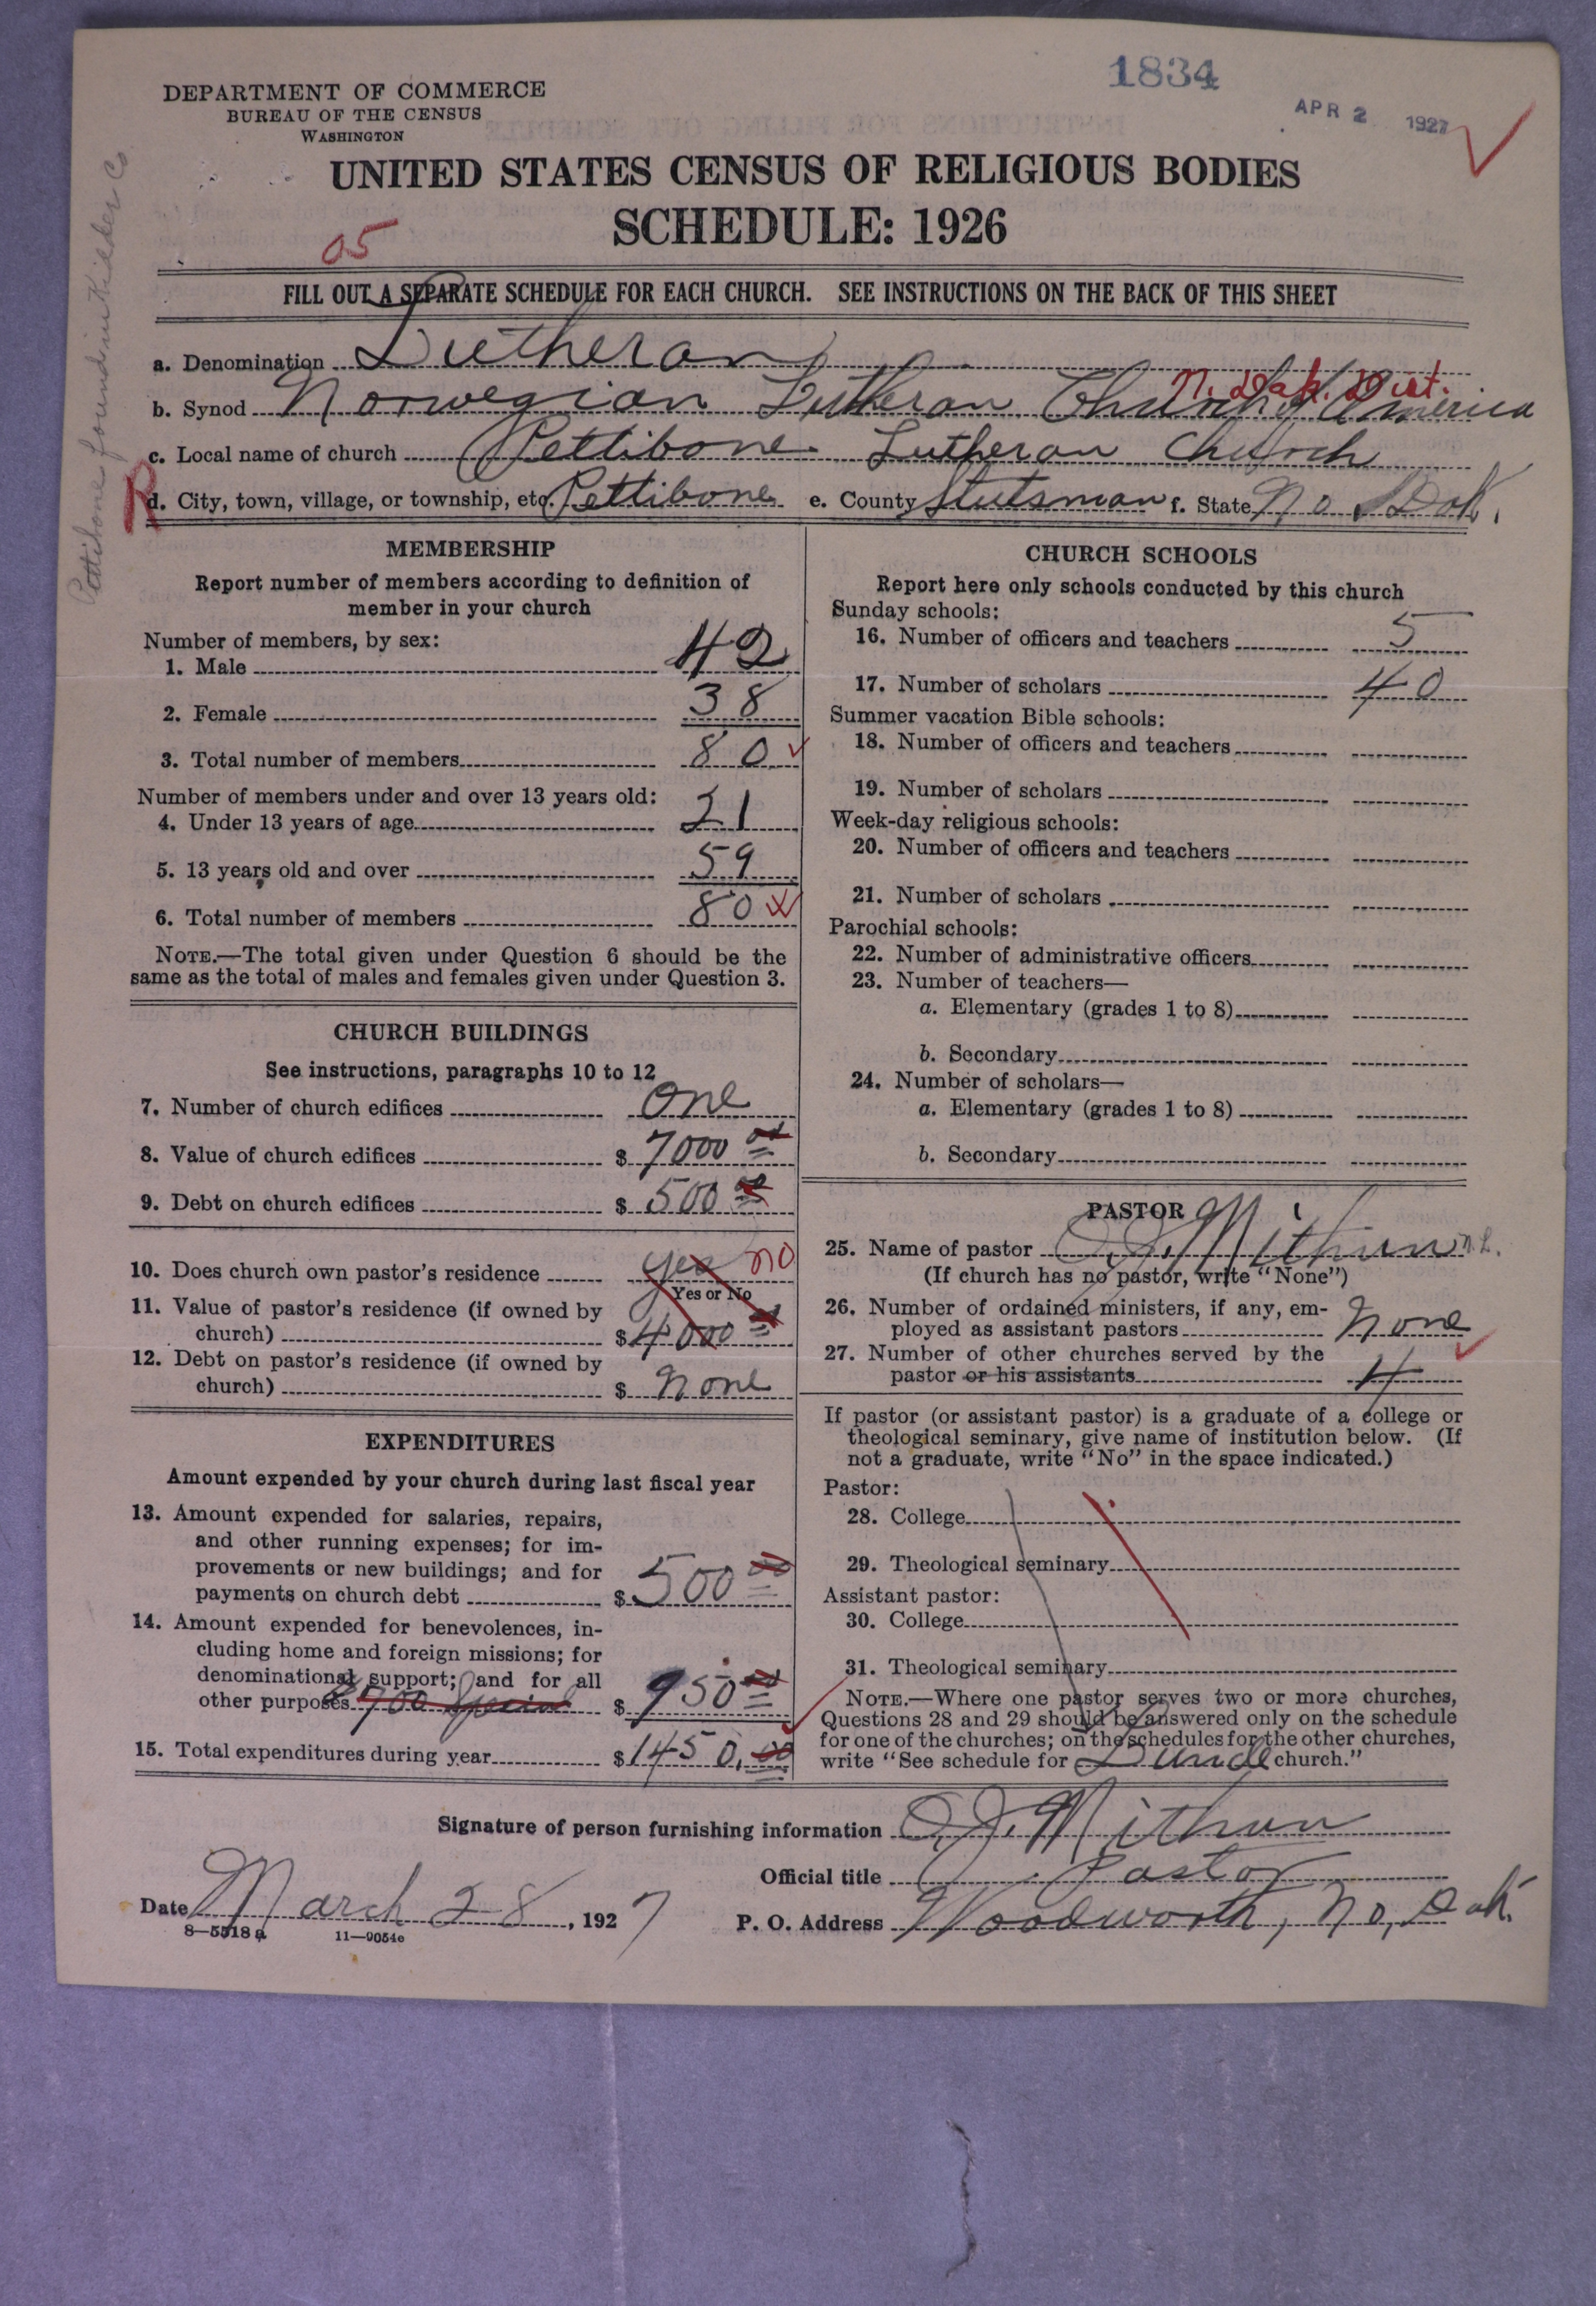 1834
APR 2 1927
DEPARTMENT OF COMMERCE
BUREAU OF THE CENSUS
WASHINGTON
UNITED STATES CENSUS OF RELIGIOUS BODIES
SCHEDULE: 1926
05
Pettibone found in Kidder Co
FILL OUT A SEPARATE SCHEDULE FOR EACH CHURCH. SEE INSTRUCTIONS ON THE BACK OF THIS SHEET
a. Denomination Lutheran
N. Dak. Dist.
b. Synod Norwegian Lutheran Church of America
c. Local name of church Pettibone Lutheran Church
R
d. City, town, village, or township, etc. Pettibone e. County Stutsman f. State No Dak.
MEMBERSHIP
Report number of members according to definition of
member in your church
Number of members, by sex:
1. Male 42
2. Female 38
3. Total number of members 80
Number of members under and over 13 years old:
4. Under 13 years of age 21
5. 13 years old and over 59
6. Total number of members 80
NOTE.—The total given under Question 6 should be the
same as the total of males and females given under Question 3.
CHURCH BUILDINGS
See instructions, paragraphs 10 to 12
7. Number of church edifices One
8. Value of church edifices $ 7000 00
9. Debt on church edifices $ 500 00
10. Does church own pastor's residence yes no
Yes or No
11. Value of pastor's residence (if owned by
church) $ 4000 00
12. Debt on pastor's residence (if owned by
church) $ None
EXPENDITURES
Amount expended by your church during last fiscal year
13. Amount expended for salaries, repairs,
and other running expenses; for im-
provements or new buildings; and for
payments on church debt $ 500 00
14. Amount expended for benevolences, in-
cluding home and foreign missions; for
denominational support; and for all
other purposes $ 950 00
15. Total expenditures during year $ 1450.00
CHURCH SCHOOLS
Report here only schools conducted by this church
Sunday schools:
16. Number of officers and teachers 5
17. Number of scholars 40
Summer vacation Bible schools:
18. Number of officers and teachers
19. Number of scholars
Week-day religious schools:
20. Number of officers and teachers
21. Number of scholars
Parochial schools:
22. Number of administrative officers
23. Number of teachers—
a. Elementary (grades 1 to 8)
b. Secondary
24. Number of scholars—
a. Elementary (grades 1 to 8)
b. Secondary
PASTOR
25. Name of pastor O. J. Mithun
(If church has no pastor, write "None")
26. Number of ordained ministers, if any, em-
ployed as assistant pastors None
27. Number of other churches served by the
pastor or his assistants 4
If pastor (or assistant pastor) is a graduate of a college or
theological seminary, give name of institution below. (If
not a graduate, write "No" in the space indicated.)
Pastor:
28. College
29. Theological seminary
Assistant pastor:
30. College
31. Theological seminary
NOTE.—Where one pastor serves two or more churches,
Questions 28 and 29 should be answered only on the schedule
for one of the churches; on the schedules for the other churches,
write "See schedule for church."
Signature of person furnishing information O. J. Mithun
Official title Pastor
Date March 28, 1927
P. O. Address Woodworth, No, Dak.
8—5518 a 11—9054c